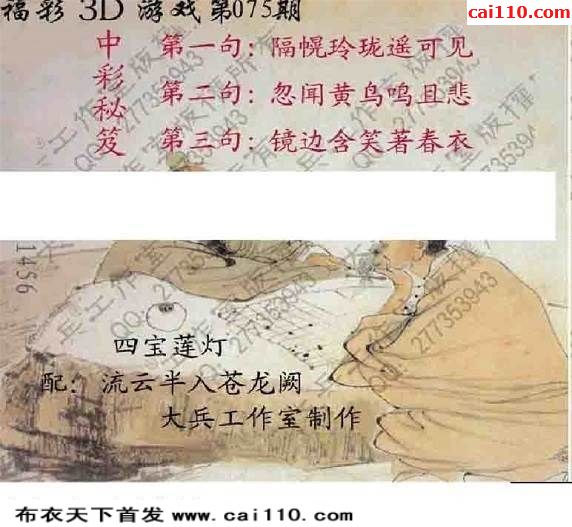 福彩 3D 游戏 第075期
cai110.com
中彩秘笈
第一句：隔幌玲珑遥可见
第二句：忽闻黄鸟鸣且悲
第三句：镜边含笑著春衣
大兵工作室版权所有
QQ:277353943
1456
四宝莲灯
配：流云半入苍龙阙
大兵工作室制作
布衣天下首发 www.cai110.com